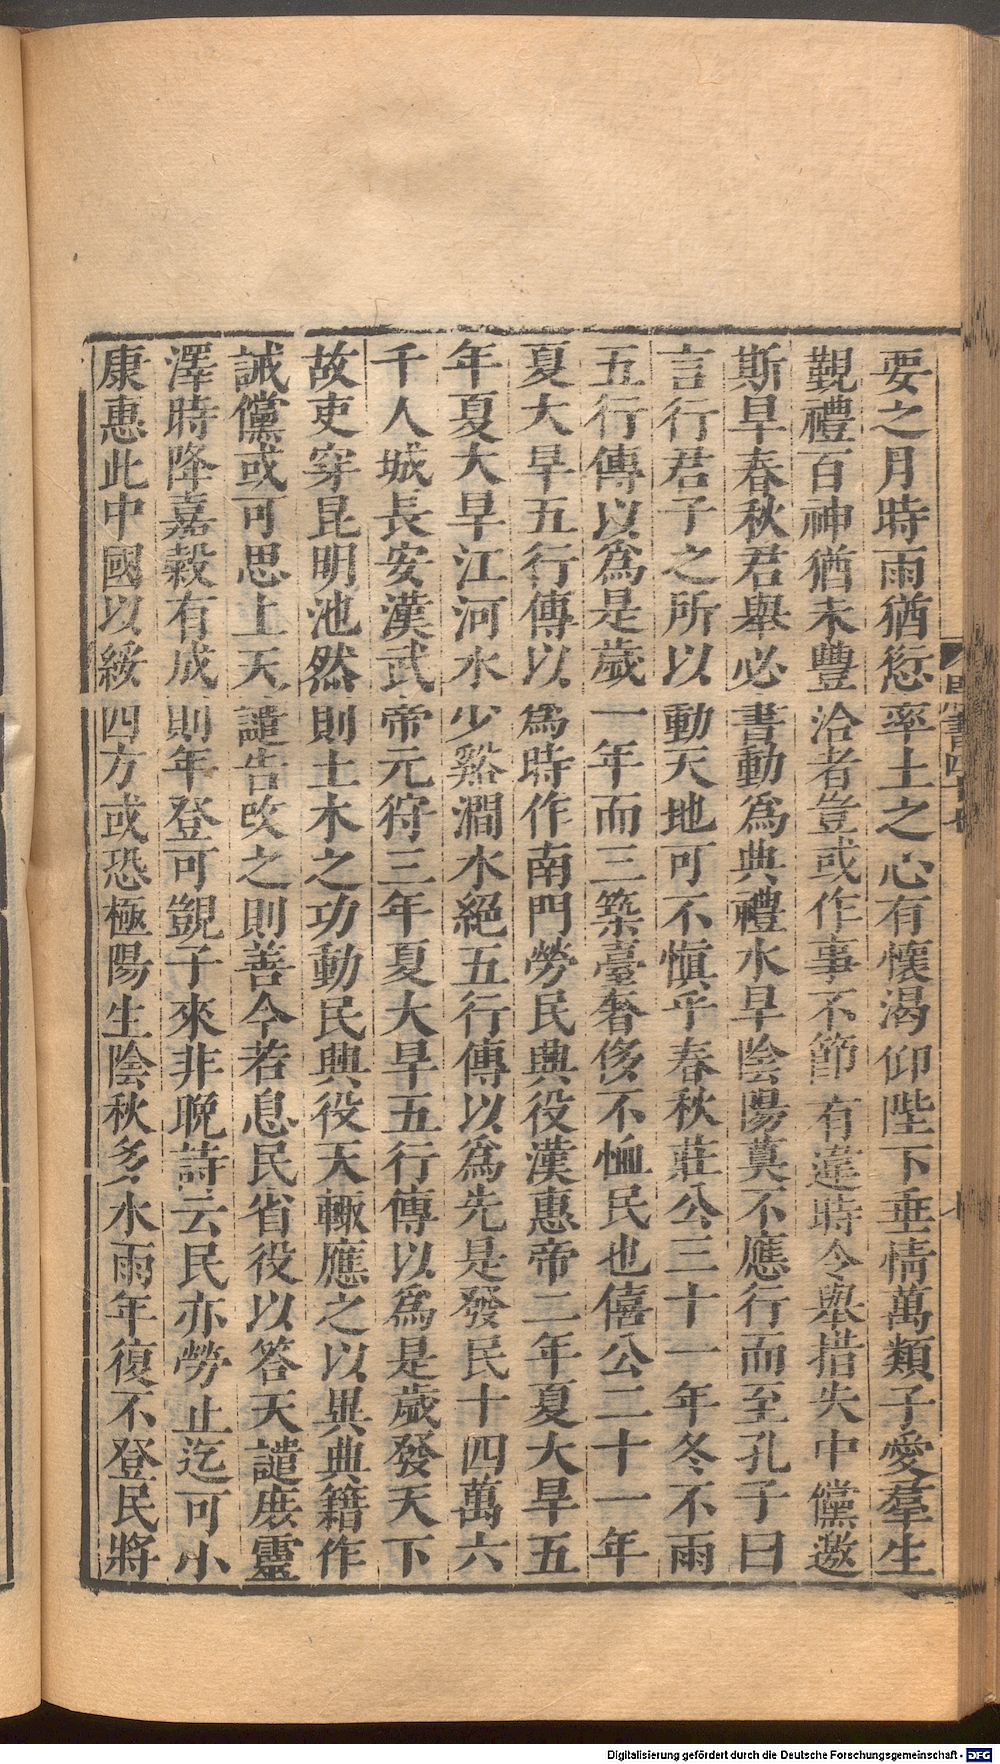 要之月時雨猶愆率土之心有懷渴仰陛下垂情萬類子愛羣生
覲禮百神猶未豐洽者豈或作事不節有違時令舉措失中儻邀
斯旱春秋君舉必書動爲典禮水旱陰陽莫不應行而至孔子曰
言行君子之所以動天地可不愼乎春秋莊公三十一年冬不雨
五行傳以爲是歲一年而三築臺奢侈不恤民也僖公二十一年
夏大旱五行傳以爲時作南門勞民興役漢惠帝二年夏大旱五
年夏大旱江河水少谿澗水絕五行傳以爲先是發民十四萬六
千人城長安漢武帝元狩三年夏大旱五行傳以爲是歲發天下
故吏穿昆明池然則土木之功動民興役天輙應之以異典籍作
誡儻或可思上天譴告改之則善今若息民省役以答天譴庶靈
澤時降嘉穀有成則年登可覬子來非晚詩云民亦勞止迄可小
康惠此中國以綏四方或恐極陽生陰秋多水雨年復不登民將
周書四十七
七
Digitalisierung gefördert durch die Deutsche Forschungsgemeinschaft - DFG